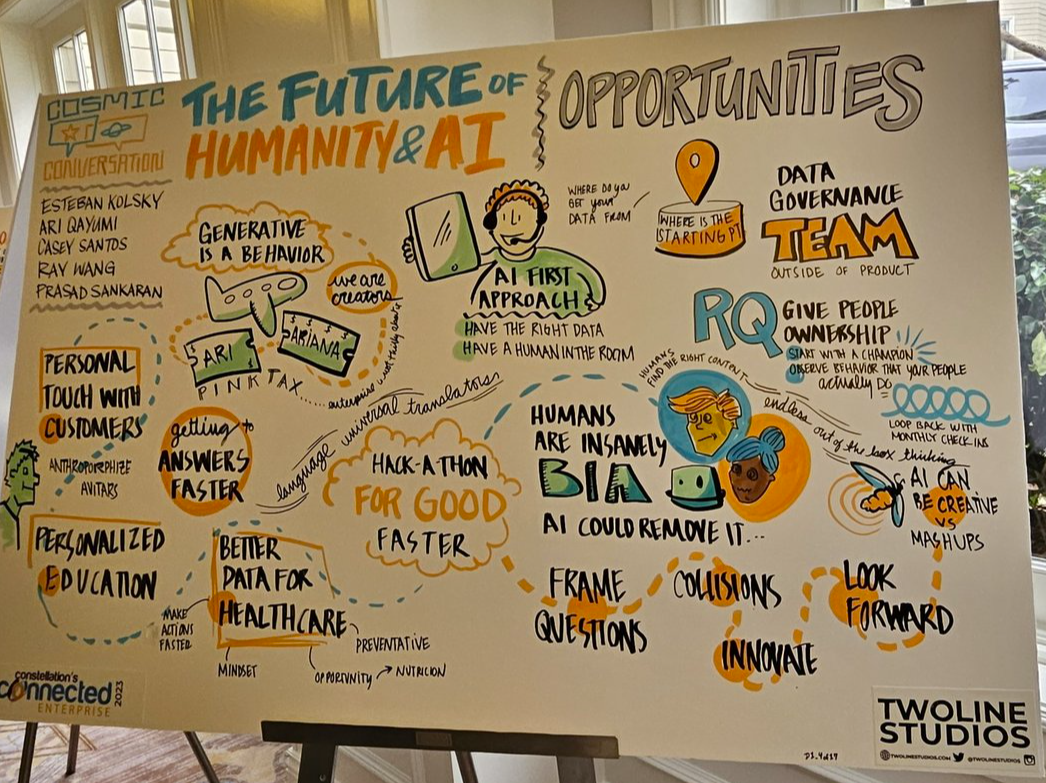 COSMIC
CONVERSATION
THE FUTURE OF
HUMANITY & AI
OPPORTUNITIES
ESTEBAN KOLSKY
ARI QAYUMI
CASEY SANTOS
RAY WANG
PRASAD SANKARAN
GENERATIVE
IS A BEHAVIOR
we are
creators
ARI
$ $ $ $
ARIANA
PINK TAX
enterprise
PERSONAL
TOUCH WITH
CUSTOMERS
ANTHROPORPHIZE
AVITARS
getting to
ANSWERS
FASTER
language universal translators
PERSONALIZED
EDUCATION
BETTER
DATA FOR
HEALTHCARE
MAKE
ACTIONS
FASTER
MINDSET
OPPORTVNITY
NUTRICION
PREVENTATIVE
AI FIRST
APPROACH
HAVE THE RIGHT DATA
HAVE A HUMAN IN THE ROOM
HACK-A-THON
FOR GOOD
FASTER
WHERE DO you
GET your
DATA FROM
WHERE IS THE
STARTING PT
DATA
GOVERNANCE
TEAM
OUTSIDE OF PRODUCT
RQ
GIVE PEOPLE
OWNERSHIP
START WITH A CHAMPION
OBSERVE BEHAVIOR THAT YOUR PEOPLE
actually DO
LOOP BACK WITH
MONTHLY CHECK INS
HUMANS
FIND THE RIGHT CONTENT
HUMANS
ARE INSANELY
BIA
AI COULD REMOVE IT...
endless out of the box thinking
AI CAN
BE CREATIVE
VS
MASHUPS
FRAME
QUESTIONS
COLLISIONS
INNOVATE
LOOK
FORWARD
constellation's
connected
ENTERPRISE
2023
TWOLINE
STUDIOS
@TWOLINESTUDIOS.COM
@TWOLINESTUDIOS